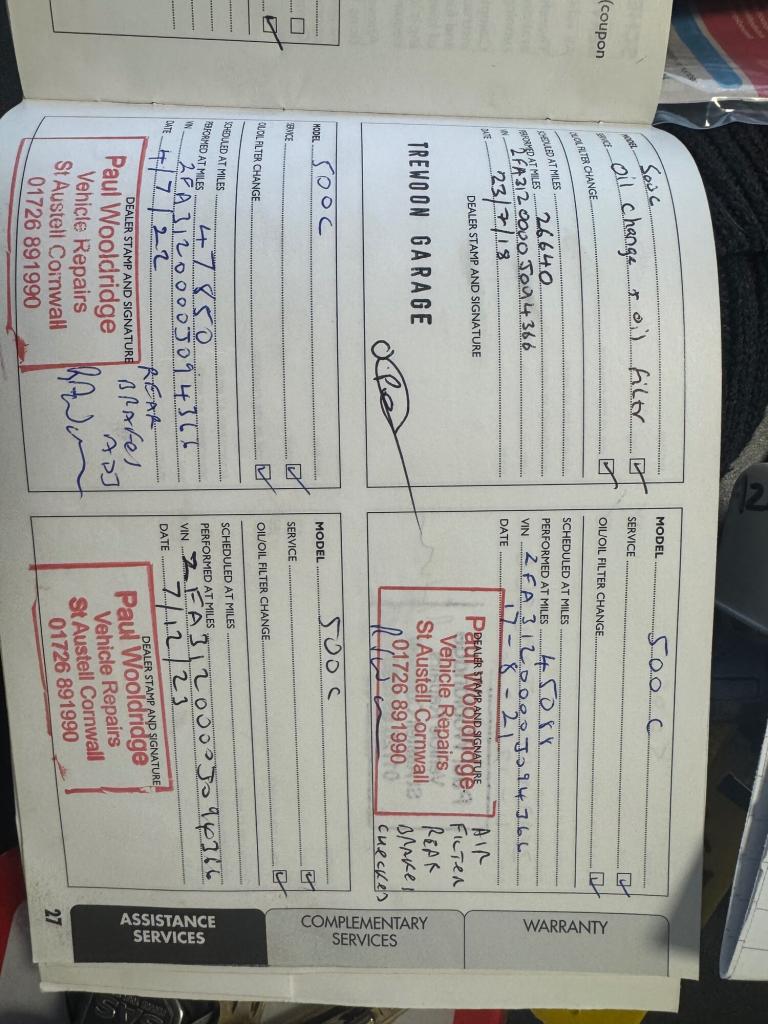 (coupon
MODEL 500c
SERVICE oil change + oil filter
OIL/OIL FILTER CHANGE
SCHEDULED AT MILES
PERFORMED AT MILES 26640
VIN 2FA3120000J094366
DATE 23/7/18
DEALER STAMP AND SIGNATURE
TREWOON GARAGE
MODEL 500C
SERVICE
OIL/OIL FILTER CHANGE
SCHEDULED AT MILES
PERFORMED AT MILES 45088
VIN 2FA3120000J094366
DATE 17-8-21
DEALER STAMP AND SIGNATURE
Paul Wooldridge
Vehicle Repairs
St Austell Cornwall
01726 891990
AIR
FILTER
REAR
BRAKES
CHECKED
MODEL 500C
SERVICE
OIL/OIL FILTER CHANGE
SCHEDULED AT MILES
PERFORMED AT MILES 47850
VIN 2FA3120000J094366
DATE 4/7/22
DEALER STAMP AND SIGNATURE
Paul Wooldridge
Vehicle Repairs
St Austell Cornwall
01726 891990
REAR
BRAKES
ADJ
MODEL 500c
SERVICE
OIL/OIL FILTER CHANGE
SCHEDULED AT MILES
PERFORMED AT MILES
VIN ZFA3120000J094366
DATE 7/12/23
DEALER STAMP AND SIGNATURE
Paul Wooldridge
Vehicle Repairs
St Austell Cornwall
01726 891990
WARRANTY
COMPLEMENTARY
SERVICES
ASSISTANCE
SERVICES
27